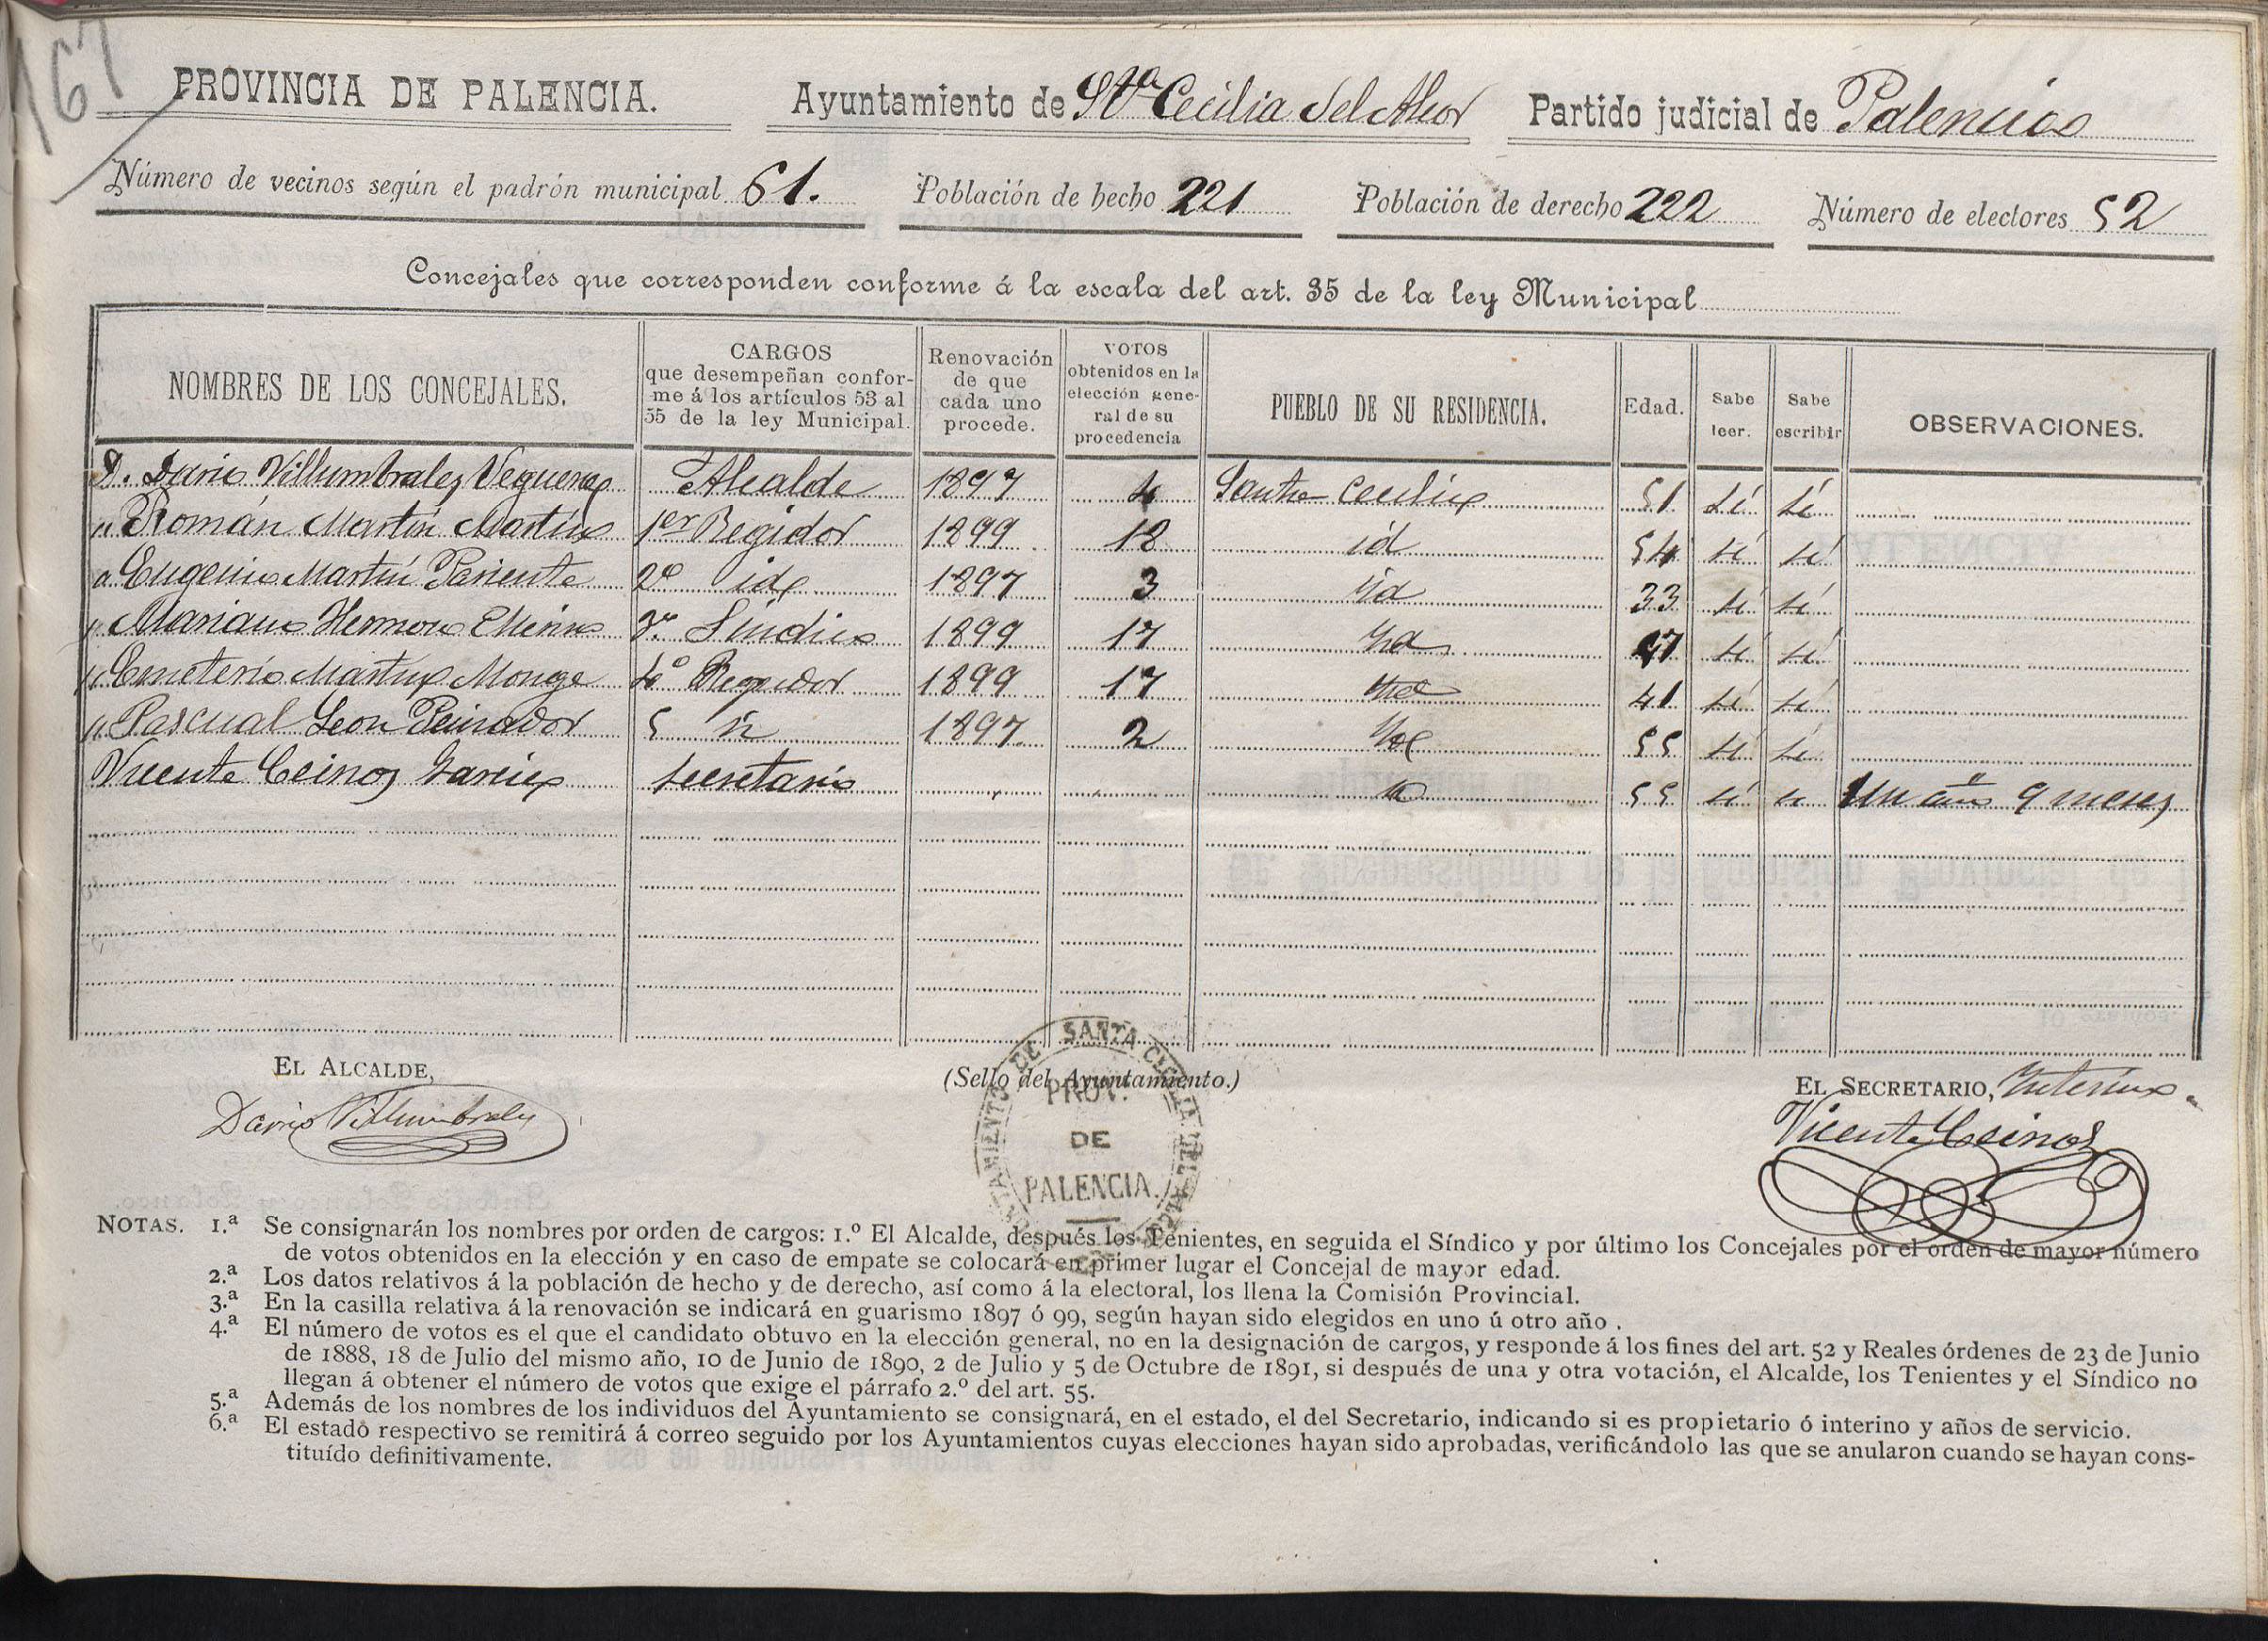 167
PROVINCIA DE PALENCIA. Ayuntamiento de Sta Cecilia del Alcor Partido judicial de Palencia
Número de vecinos según el padrón municipal 61. Población de hecho 221 Población de derecho 222 Número de electores 52
Concejales que corresponden conforme á la escala del art. 35 de la ley Municipal
NOMBRES DE LOS CONCEJALES. CARGOS que desempeñan conforme á los artículos 53 al 55 de la ley Municipal. Renovación de que cada uno procede. VOTOS obtenidos en la elección general de su procedencia PUEBLO DE SU RESIDENCIA. Edad. Sabe leer. Sabe escribir OBSERVACIONES.
D. Dario Villumbrales Alcalde 1897 4 Santa Cecilia 51 sí sí
" Román Martín Martín 1er Regidor 1899 18 id 54 sí sí
" Eugenio Martín Pariente 2º id 1897 3 id 33 sí sí
" Mariano Hermoso Merino 3º Síndico 1899 17 id 47 sí sí
" Emeterio Martín Monge 4º Regidor 1899 17 id 41 sí sí
" Pascual Leon Peinador 5 id 1897 2 id 55 sí sí
Vicente Ceinos Garcia Secretario id 55 sí si Un año 9 meses
EL ALCALDE,
Dario Villumbrales
(Sello del Ayuntamiento.)
AYUNTAMIENTO DE SANTA CECILIA DEL ALCOR
PROV.
DE
PALENCIA.
EL SECRETARIO, Interino.
Vicente Ceinos
NOTAS. 1.ª Se consignarán los nombres por orden de cargos: 1.º El Alcalde, después los Tenientes, en seguida el Síndico y por último los Concejales por el orden de mayor número
de votos obtenidos en la elección y en caso de empate se colocará en primer lugar el Concejal de mayor edad.
2.ª Los datos relativos á la población de hecho y de derecho, así como á la electoral, los llena la Comisión Provincial.
3.ª En la casilla relativa á la renovación se indicará en guarismo 1897 ó 99, según hayan sido elegidos en uno ú otro año .
4.ª El número de votos es el que el candidato obtuvo en la elección general, no en la designación de cargos, y responde á los fines del art. 52 y Reales órdenes de 23 de Junio
de 1888, 18 de Julio del mismo año, 10 de Junio de 1890, 2 de Julio y 5 de Octubre de 1891, si después de una y otra votación, el Alcalde, los Tenientes y el Síndico no
llegan á obtener el número de votos que exige el párrafo 2.º del art. 55.
5.ª Además de los nombres de los individuos del Ayuntamiento se consignará, en el estado, el del Secretario, indicando si es propietario ó interino y años de servicio.
6.ª El estado respectivo se remitirá á correo seguido por los Ayuntamientos cuyas elecciones hayan sido aprobadas, verificándolo las que se anularon cuando se hayan cons-
tituído definitivamente.